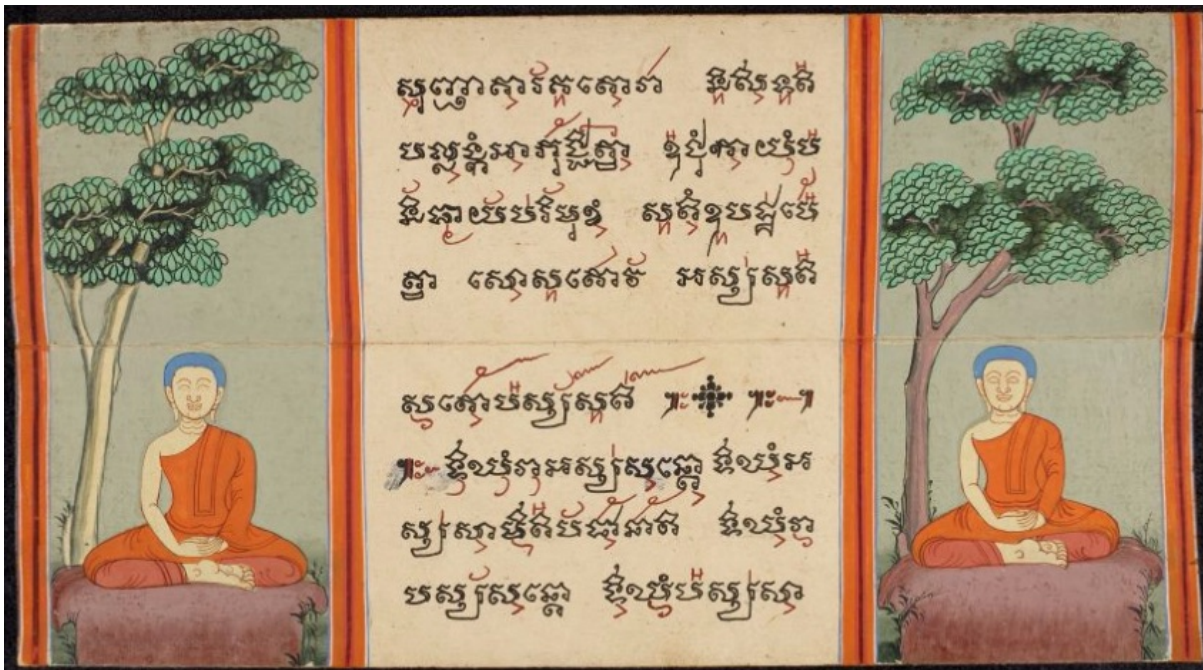 សុញ្ញាគារគតោវា និសីទតិ
បល្លង្កំអាភុជិត្វា ឧជុំកាយំប
ណិធាយបរិមុខំ សតិំឧបដ្ឋបេ
ត្វា សោសតោវ អស្សសតិ
សតោបស្សសតិ
ទីឃំវាអស្សសន្តោ ទីឃំអ
ស្សសាមីតិបជានាតិ ទីឃំវា
បស្សសន្តោ ទីឃំបស្សសា